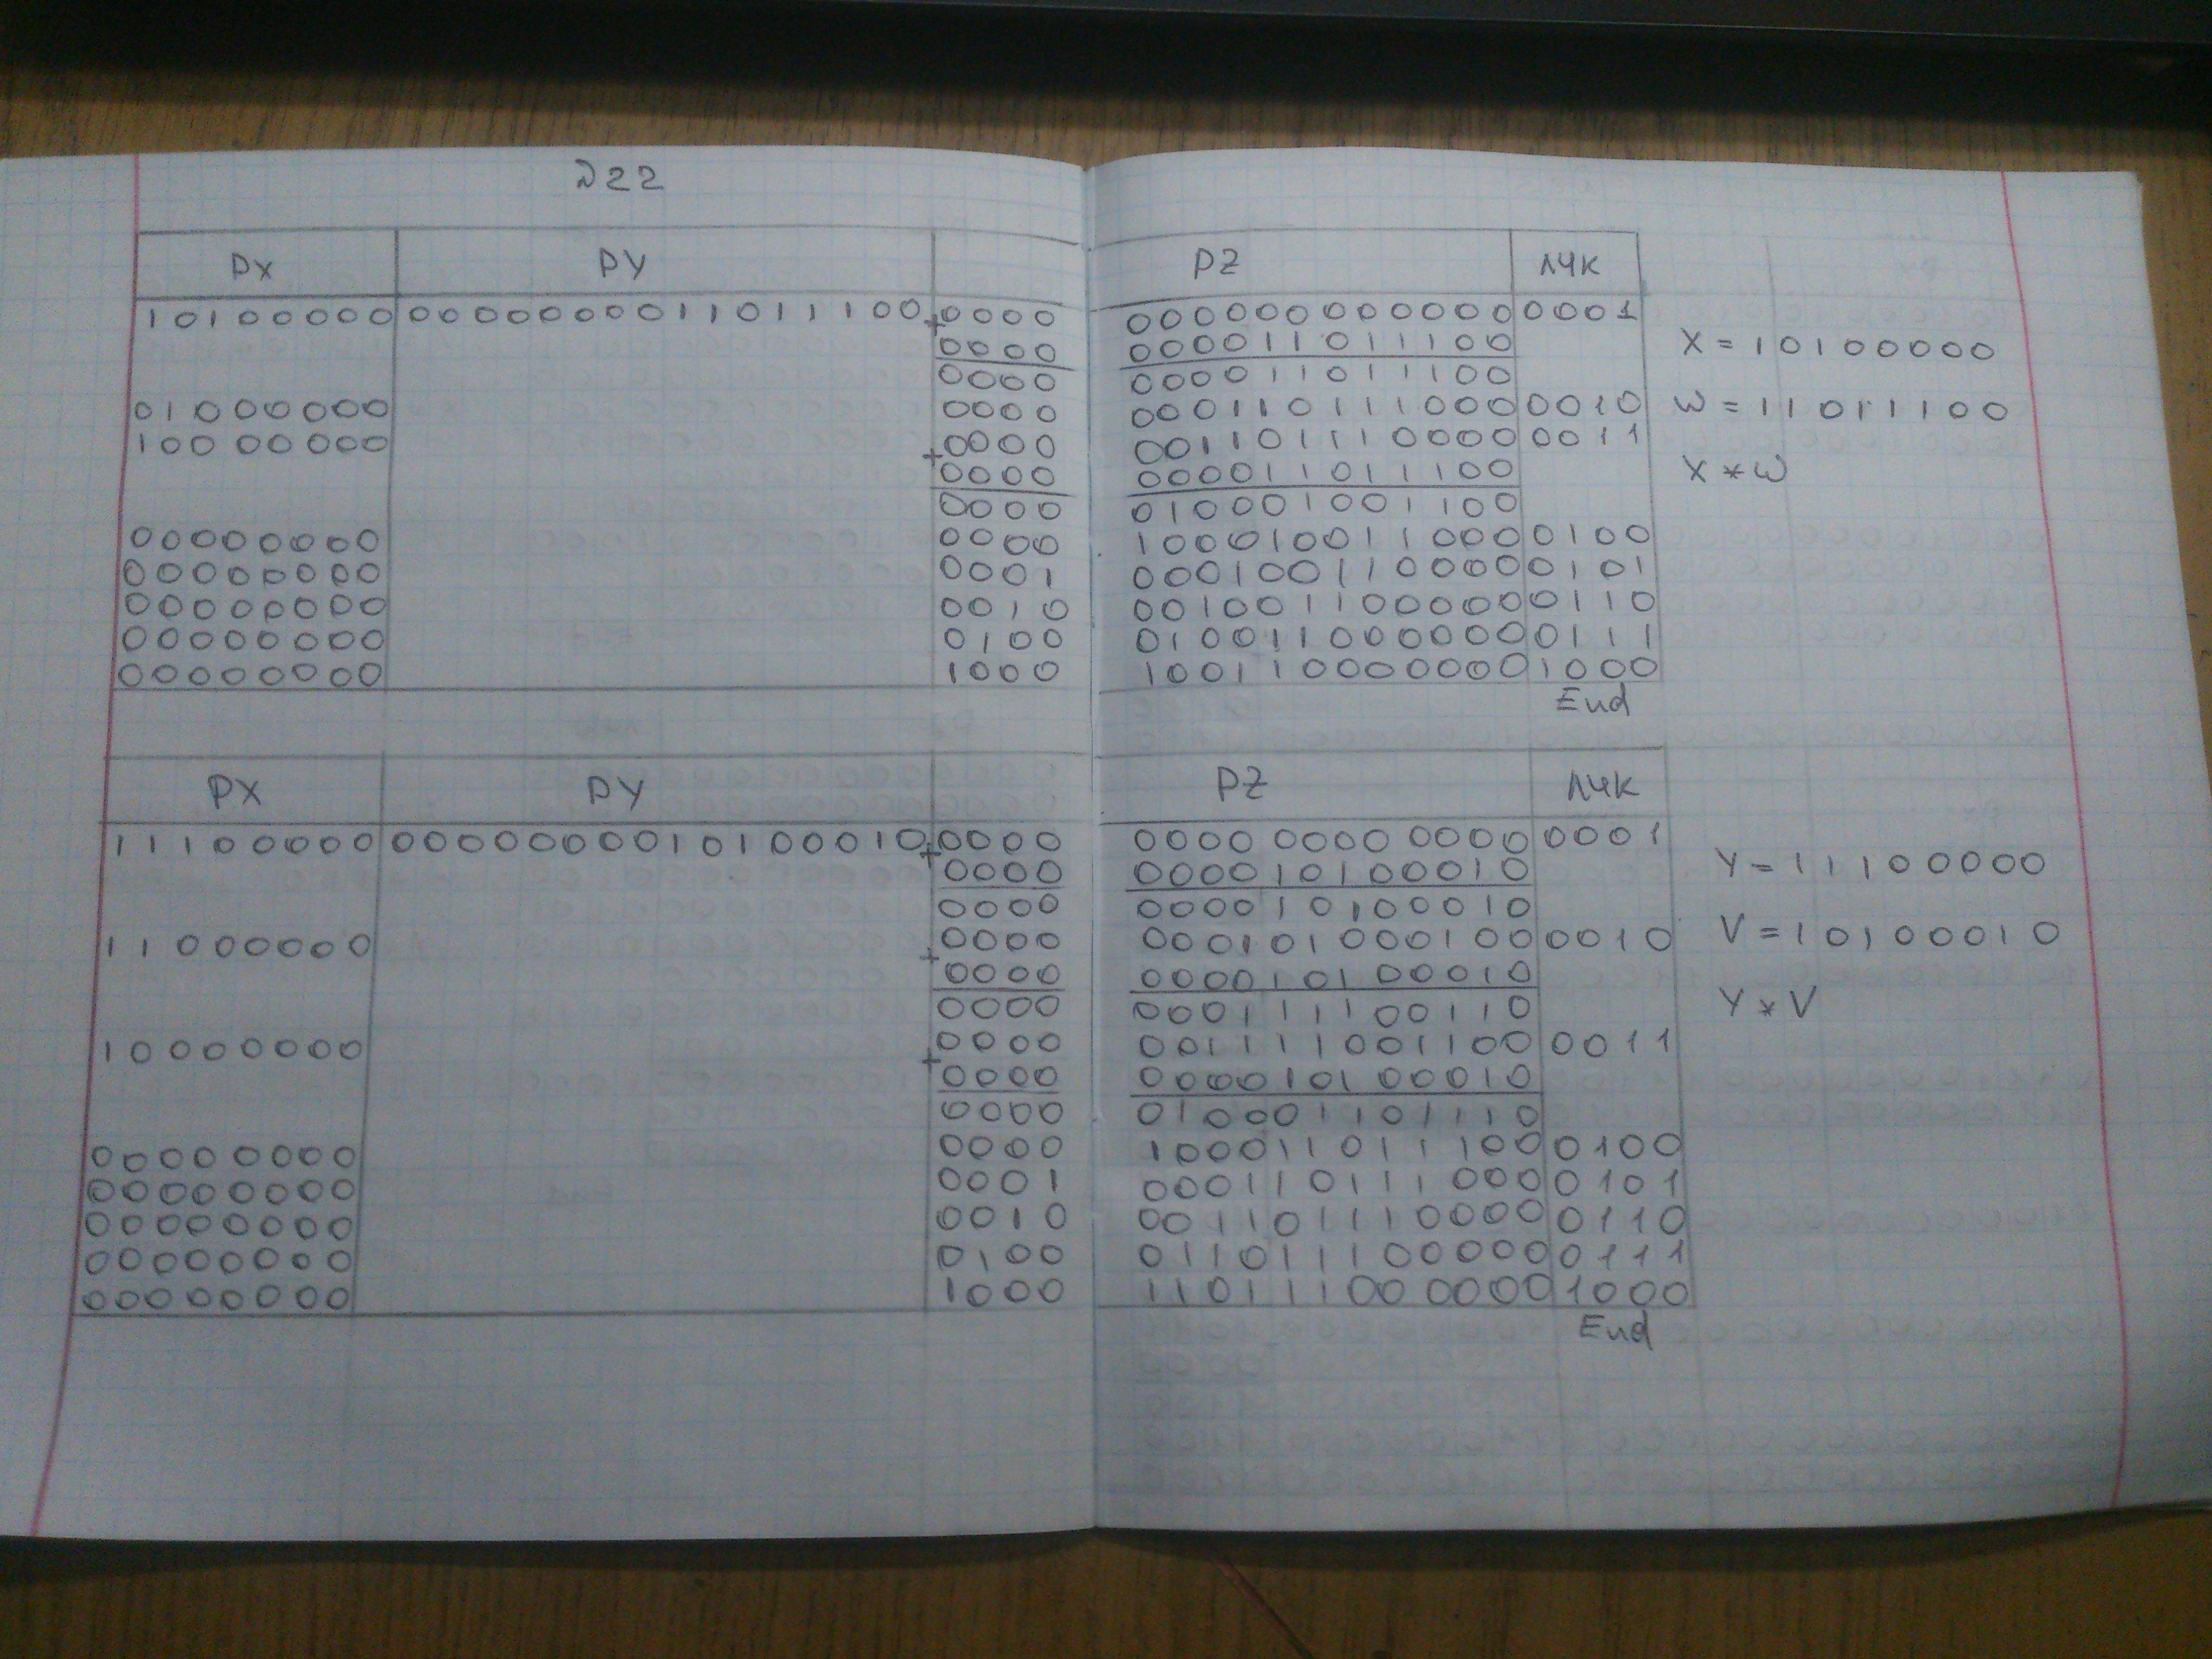 D22
PX PY PZ ЛЧК
10100000 0000000011011100 0000 000000000000 0001
+ 0000 000011011100
0000 000011011100
01000000 0000 000110111000 0010
10000000 0000 001101110000 0011
+ 0000 000011011100
0000 010001001100
00000000 0000 100010011000 0100
00000000 0001 000100110000 0101
00000000 0010 001001100000 0110
00000000 0100 010011000000 0111
00000000 1000 100110000000 1000
End
X = 10100000
W = 11011100
X * W
PX PY PZ ЛЧК
11100000 0000000010100010 0000 0000 0000 0000 0001
+ 0000 000010100010
0000 000010100010
11000000 0000 000101000100 0010
+ 0000 000010100010
0000 000111100110
10000000 0000 001111001100 0011
+ 0000 000010100010
0000 010001101110
00000000 0000 100011011100 0100
00000000 0001 000110111000 0101
00000000 0010 001101110000 0110
00000000 0100 011011100000 0111
00000000 1000 110111000000 1000
End
Y = 11100000
V = 10100010
Y * V